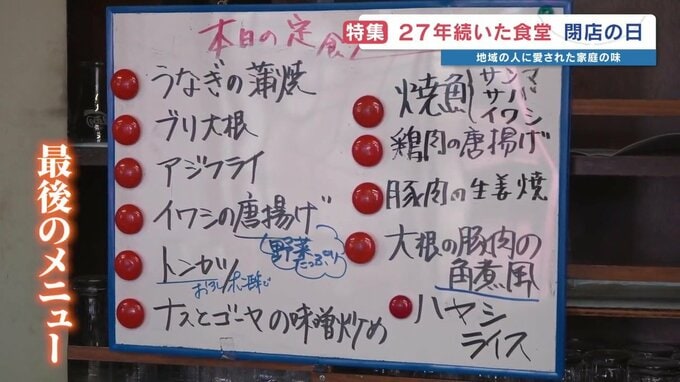 特集 27年続いた食堂 閉店の日
地域の人に愛された家庭の味
最後のメニュー
本日の定食
うなぎの蒲焼
ブリ大根
アジフライ
イワシの唐揚げ
野菜
たっぷり
トンカツ
おろしポン酢
ナスとゴーヤの味噌炒め
焼魚
サンマ
サバ
イワシ
鶏肉の唐揚げ
豚肉の生姜焼
大根の豚肉の
角煮風
ハヤシ
ライス